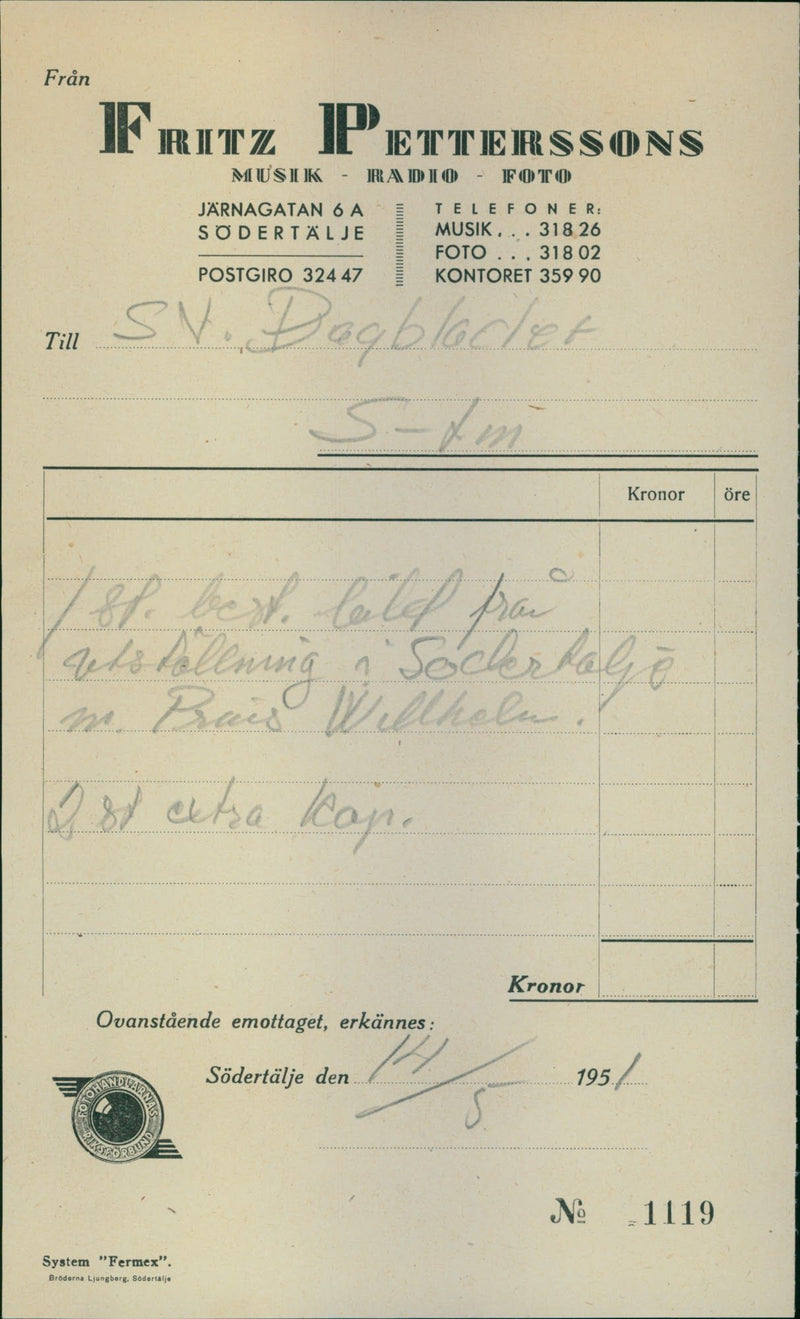 Från
FRITZ PETTERSSONS
MUSIK - RADIO - FOTO
JÄRNAGATAN 6 A
SÖDERTÄLJE
POSTGIRO 324 47
TELEFONER:
MUSIK . . . 318 26
FOTO . . . 318 02
KONTORET 359 90
Till SV. Dagbladet
S-lm
Kronor öre
1 st. best. bild från
utställning i Södertälje
m. Prins Wilhelm.
2 st extra kop.
Kronor
Ovanstående emottaget, erkännes:
Södertälje den 14/5 1951
FOTOHANDLARNAS
RIKSFÖRBUND
№ 1119
System "Fermex".
Bröderna Ljungberg, Södertälje